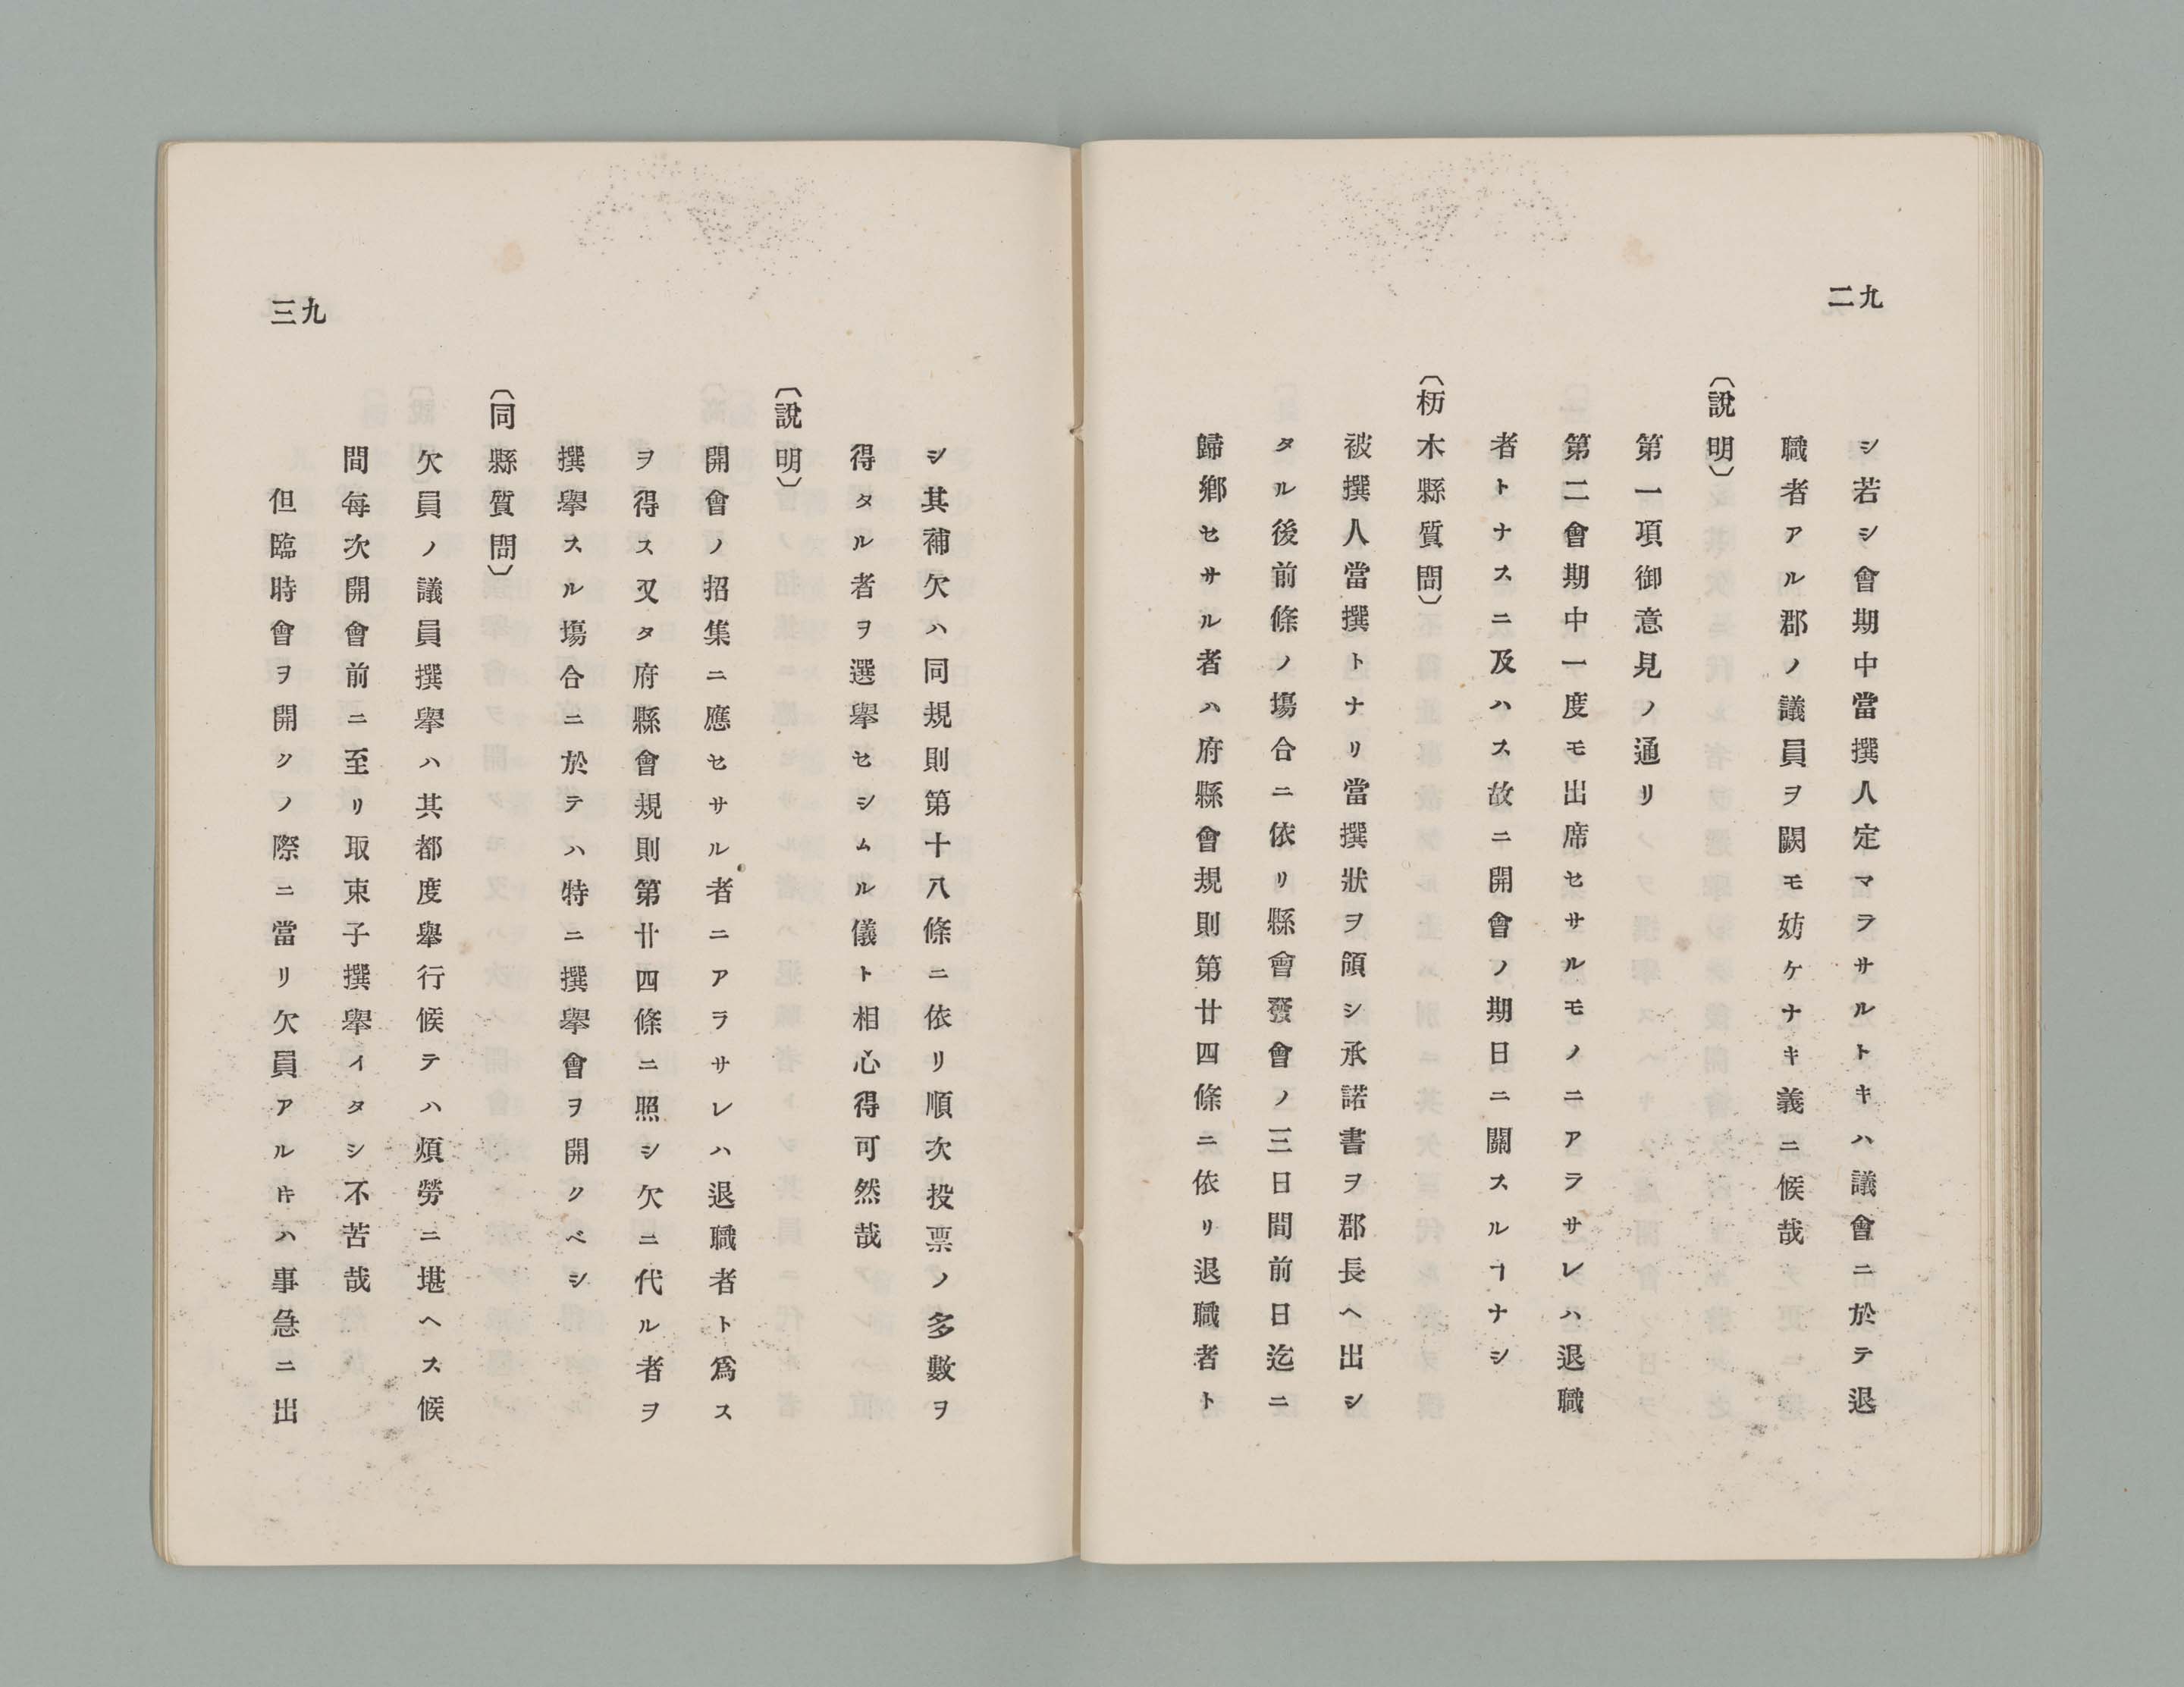 二九
シ若シ會期中當撰人定マラサルトキハ議會ニ於テ退
職者アル郡ノ議員ヲ闕モ妨ケナキ義ニ候哉
〔說明〕
第一項御意見ノ通リ
第二會期中一度モ出席セサルモノニアラサレハ退職
者トナスニ及ハス故ニ開會ノ期日ニ關スルヿナシ
〔栃木縣質問〕
被撰人當撰トナリ當撰狀ヲ領シ承諾書ヲ郡長ヘ出シ
タル後前條ノ塲合ニ依リ縣會發會ノ三日間前日迄ニ
歸鄕セサル者ハ府縣會規則第廿四條ニ依リ退職者ト
三九
シ其補欠ハ同規則第十八條ニ依リ順次投票ノ多數ヲ
得タル者ヲ選擧セシムル儀ト相心得可然哉
〔說明〕
開會ノ招集ニ應セサル者ニアラサレハ退職者ト爲ス
ヲ得ス又タ府縣會規則第廿四條ニ照シ欠ニ代ル者ヲ
撰擧スル塲合ニ於テハ特ニ撰擧會ヲ開クベシ
〔同縣質問〕
欠員ノ議員撰擧ハ其都度擧行候テハ煩勞ニ堪ヘス候
間每次開會前ニ至リ取束子撰擧イタシ不苦哉
但臨時會ヲ開クノ際ニ當リ欠員アルㇳキハ事急ニ出